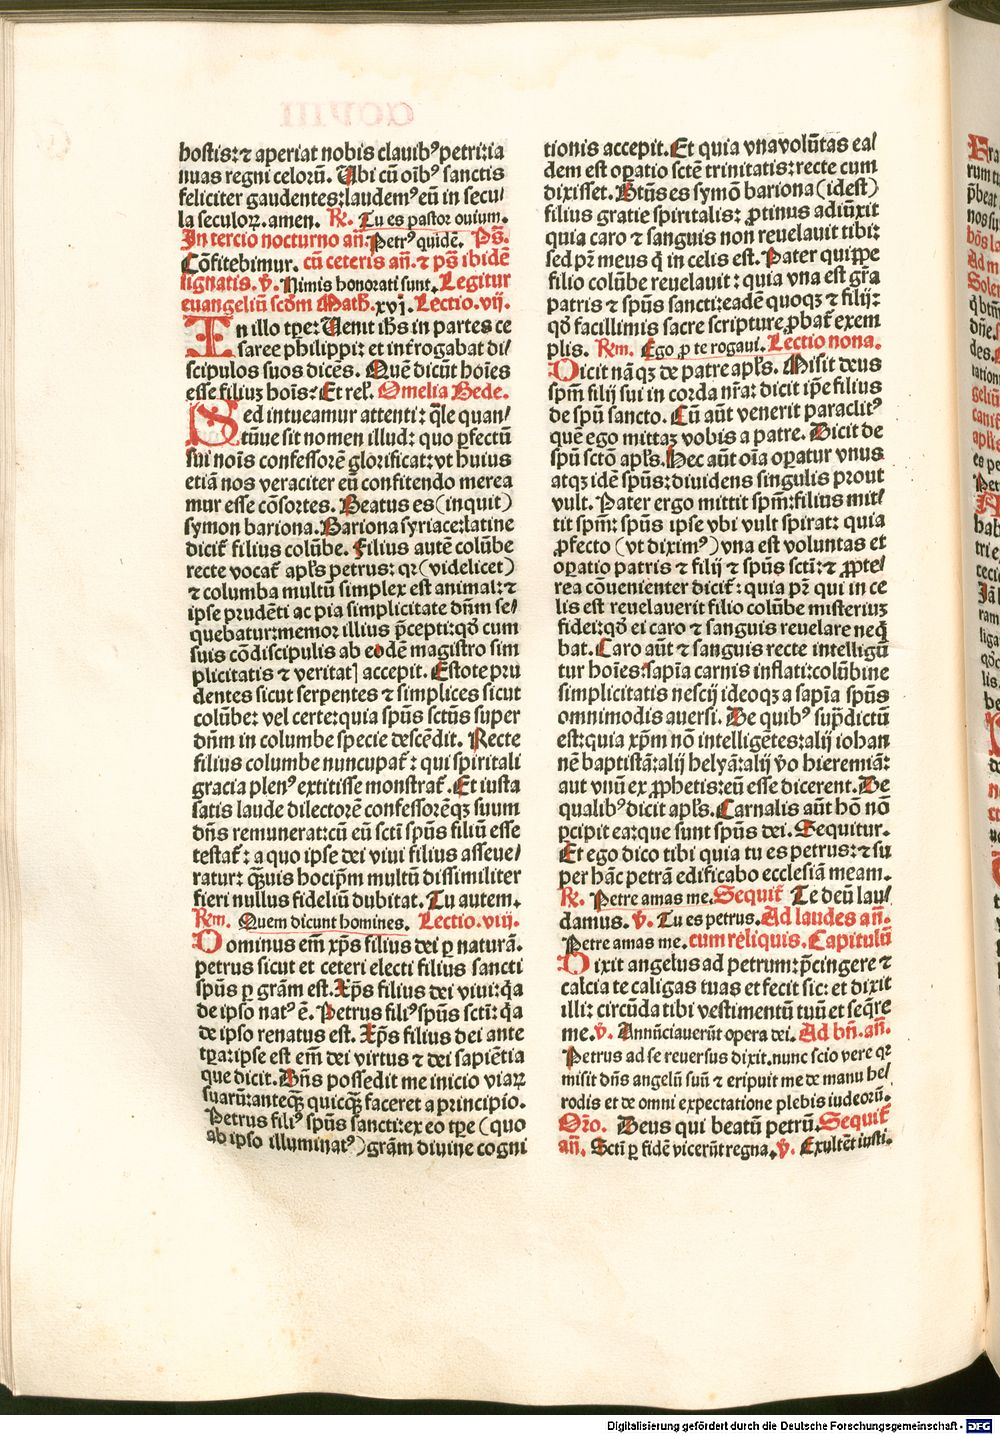 hostis: ⁊ aperiat nobis clauibꝰ petri: ia
nuas regni celoꝝ. Vbi cū oībꝰ sanctis
feliciter gaudentes: laudemꝰ eū in secu/
la seculoꝝ. amen. R̃. Tu es pastor ouium.
In tercio nocturno añ. Petrꝰ quidē. Pš.
Cōfitebimur. cū ceteris añ. ⁊ pš ibidē
signatis. v̄. Nimis honorati sunt. Legitur
euangeliū scḋm Math. xvj. Lectio. vij.
In illo tꝑe: Venit ihs̄ in partes ce
saree philippi: et int̄rogabat di/
scipulos suos dicēs. Quē dicūt hoīes
esse filiuꝫ hoīs? Et rel̄. Omelia Bede.
Sed intueamur attenti: q̄le quan/
tūue sit nomen illud: quo ꝑfectū
sui noīs confessorē glorificat: vt huius
etiā nos veraciter eū confitendo merea
mur esse cōsortes. Beatus es (inquit)
symon bariona. Bariona syriace: latine
dicit̄ filius colūbe. Filius autē colūbe
recte vocat̄ apl̄s petrus: qꝛ (videlicet)
⁊ columba multū simplex est animal: ⁊
ipse prudēti ac pia simplicitate dn̄m se/
quebatur: memor illius p̄cepti: qḋ cum
suis cōdiscipulis ab eodē magistro sim
plicitatis ⁊ veritatꝭ accepit. Estote pru
dentes sicut serpentes ⁊ simplices sicut
colūbe: vel certe: quia spūs sctūs super
dn̄m in columbe specie descēdit. Recte
filius columbe nuncupat̄: qui spiritali
gracia plenꝰ extitisse monstrat̄. Et iusta
satis laude dilectorē confessorēqꝫ suum
dn̄s remunerat: cū eū scti spūs filiū esse
testat̄: a quo ipse dei viui filius asseue/
ratur: q̄uis hoc ipm̄ multū dissimiliter
fieri nullus fideliū dubitat. Tu autem.
R̃m. Quem dicunt homines. Lectio. viij.
Dominus em̄ xp̄s filius dei ꝑ naturā.
petrus sicut et ceteri electi filius sancti
spūs ꝑ grām est. Xp̄s filius dei viui: q̄a
de ipso natꝰ ē. Petrus filiꝰ spūs scti: q̄a
de ipso renatus est. Xp̄s filius dei ante
tꝑa: ipse est em̄ dei virtus ⁊ dei sapiētia
que dicit. Dn̄s possedit me inicio viaꝝ
suarū: anteq̄ꝫ quicq̄ꝫ faceret a principio.
Petrus filiꝰ spūs sancti: ex eo tꝑe (quo
ab ipso illuminatꝰ) grām diuine cogni
tionis accepit. Et quia vna volūtas ea/
dem est oꝑatio sctē trinitatis: recte cum
dixisset. Btn̄s es symō bariona (id est)
filius gratie spiritalis: ꝓtinus adiūxit
quia caro ⁊ sanguis non reuelauit tibi:
sed pr̄ meus q̇ in celis est. Pater quippe
filio colūbe reuelauit: quia vna est gr̄a
patris ⁊ spūs sancti: eadē quoqꝫ ⁊ filij:
qḋ facillimis sacre scripture ꝓbat̄ exem
plis. R̃m. Ego ꝓ te rogaui. Lectio nona.
Dicit nāqꝫ de patre apl̄s. Misit deus
spm̄ filij sui in corda nr̄a: dicit ip̄e filius
de spū sancto. Cū aūt venerit paraclitꝰ
quē ego mittaꝫ vobis a patre. Dicit de
spū sctō apl̄s. Hec aūt oīa oꝑatur vnus
atqꝫ idē spūs: diuidens singulis prout
vult. Pater ergo mittit spm̄: filius mit/
tit spm̄: spūs ipse vbi vult spirat: quia
ꝓfecto (vt diximꝰ) vna est voluntas et
oꝑatio patris ⁊ filij ⁊ spūs sctī: ⁊ ꝓpte/
rea cōuenienter dicit̄: quia pr̄ qui in ce
lis est reuelauerit filio colūbe misteriuꝫ
fidei: qḋ ei caro ⁊ sanguis reuelare neq̄
bat. Caro aūt ⁊ sanguis recte intelligū
tur hoīes: sapīa carnis inflati: colūbine
simplicitatis nescij ideoqꝫ a sapīa spūs
omnimodis auersi. De quibꝰ sup̄dictū
est: quia xp̄m nō intelligētes: alij iohan
nē baptistā: alij helyā: alij v̄o hieremiā:
aut vnū ex ꝓphetis: eū esse dicerent. De
qualibꝰ dicit apl̄s. Carnalis aūt hō nō
ꝑcipit ea: que sunt spūs dei. Sequitur.
Et ego dico tibi quia tu es petrus: ⁊ su
per hāc petrā edificabo ecclesiā meam.
R̃. Petre amas me. Sequit̄ Te deū lau/
damus. v̄. Tu es petrus. Ad laudes añ.
Petre amas me. cum reliquis. Capitulū
Dixit angelus ad petrum: p̄cingere ⁊
calcia te caligas tuas et fecit sic: et dixit
illi: circūda tibi vestimentū tuū et seq̄re
me. v̄. Annūciauerūt opera dei. Ad bn̄. añ.
Petrus ad se reuersus dixit. nunc scio vere qꝛ
misit dn̄s angelū suū ⁊ eripuit me de manu he/
rodis et de omni expectatione plebis iudeorū.
Oro. Deus qui beatū petrū. Sequit̄
añ. Scti ꝑ fidē vicerūt regna. v̄. Exultēt iusti.
Digitalisierung gefördert durch die Deutsche Forschungsgemeinschaft - DFG